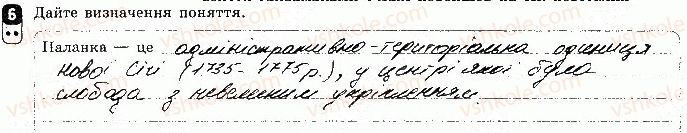 6 Дайте визначення поняття.
Паланка — це адміністративно-територіальна одиниця
нової Січі (1735-1775р.), у центрі якої була
слобода з невеликим укріпленням.